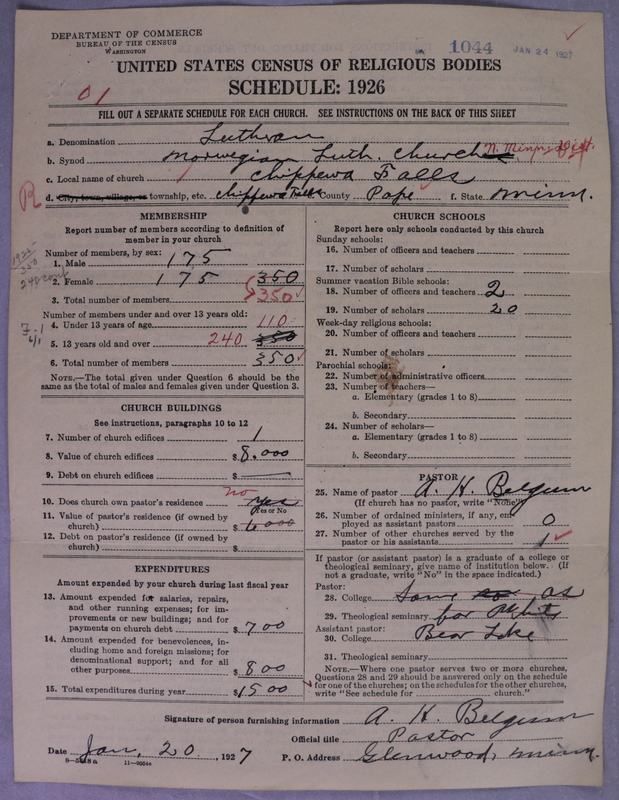 DEPARTMENT OF COMMERCE
BUREAU OF THE CENSUS
WASHINGTON
1044
JAN 24 1927
UNITED STATES CENSUS OF RELIGIOUS BODIES
SCHEDULE: 1926
01
FILL OUT A SEPARATE SCHEDULE FOR EACH CHURCH. SEE INSTRUCTIONS ON THE BACK OF THIS SHEET
a. Denomination Lutheran
b. Synod Norwegian Luth. Church N. Minn. Dist.
c. Local name of church Chippewa Falls
R
d. City, town, village, or township, etc. Chippewa Falls County Pope f. State Minn.
MEMBERSHIP
Report number of members according to definition of
member in your church
Number of members, by sex:
1. Male 175
2. Female 175 350
3. Total number of members 350
Number of members under and over 13 years old:
4. Under 13 years of age 110
5. 13 years old and over 240 350
6. Total number of members 350
NOTE.—The total given under Question 6 should be
same as the total of males and females given under Question 3.
CHURCH BUILDINGS
See instructions, paragraphs 10 to 12
7. Number of church edifices 1
8. Value of church edifices $ 8.000
9. Debt on church edifices $ —
10. Does church own pastor's residence no Yes
Yes or No
11. Value of pastor's residence (if owned by
church) $ 6000
12. Debt on pastor's residence (if owned by
church) $
EXPENDITURES
Amount expended by your church during last fiscal year
13. Amount expended for salaries, repairs,
and other running expenses; for im-
provements or new buildings; and for
payments on church debt $ 700
14. Amount expended for benevolences, in-
cluding home and foreign missions; for
denominational support; and for all
other purposes $ 800
15. Total expenditures during year $ 1500
CHURCH SCHOOLS
Report here only schools conducted by this church
Sunday schools:
16. Number of officers and teachers
17. Number of scholars
Summer vacation Bible schools:
18. Number of officers and teachers 2
19. Number of scholars 20
Week-day religious schools:
20. Number of officers and teachers
21. Number of scholars
Parochial schools:
22. Number of administrative officers
23. Number of teachers—
a. Elementary (grades 1 to 8)
b. Secondary
24. Number of scholars—
a. Elementary (grades 1 to 8)
b. Secondary
PASTOR
25. Name of pastor A. H. Belgum
(If church has no pastor, write "None")
26. Number of ordained ministers, if any, em-
ployed as assistant pastors 0
27. Number of other churches served by the
pastor or his assistants 1
If pastor (or assistant pastor) is a graduate of a college or
theological seminary, give name of institution below. (If
not a graduate, write "No" in the space indicated.)
Pastor:
28. College Same as
29. Theological seminary for White
Assistant pastor:
30. College Bear Lake
31. Theological seminary
NOTE.—Where one pastor serves two or more churches,
Questions 28 and 29 should be answered only on the schedule
for one of the churches; on the schedules for the other churches,
write "See schedule for church."
Signature of person furnishing information A. H. Belgum
Official title Pastor
Date Jan, 20, 1927 P. O. Address Glenwood, Minn.